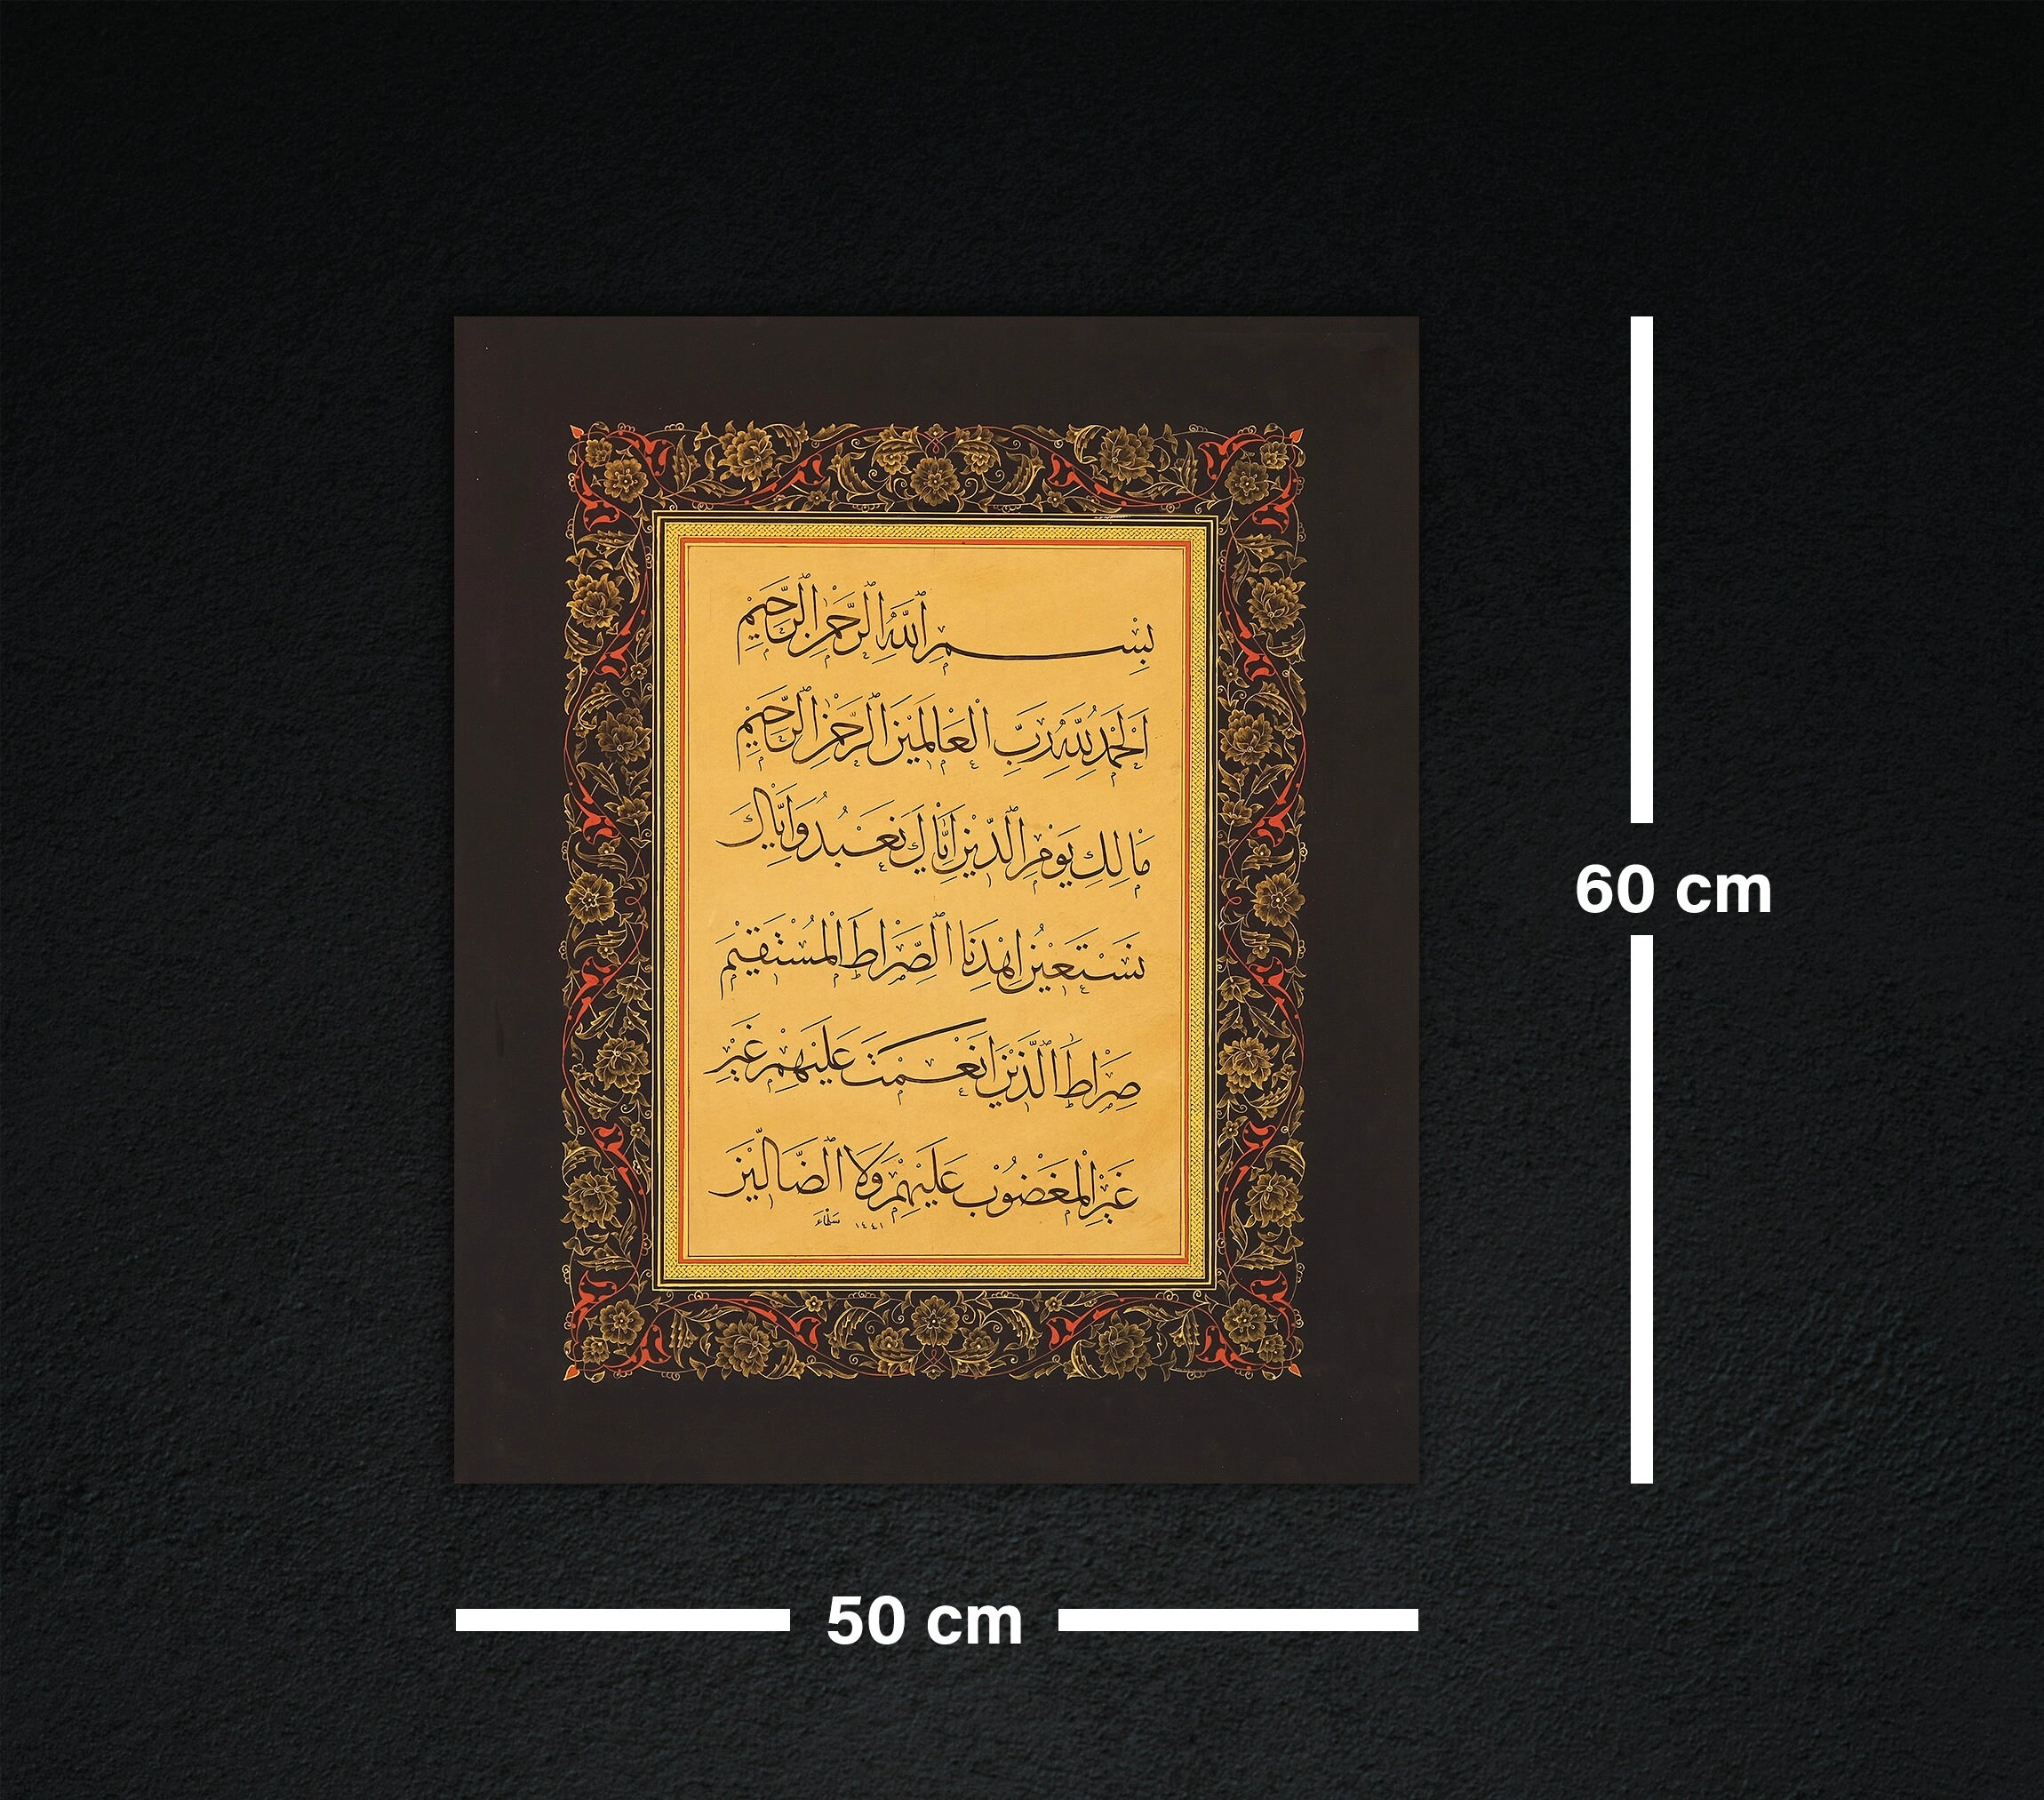 بِسْمِ اللَّهِ الرَّحْمٰنِ الرَّحِيمِ
اَلْحَمْدُ لِلَّهِ رَبِّ الْعَالَمِينَ الرَّحْمٰنِ الرَّحِيمِ
مَالِكِ يَوْمِ الدِّينِ اِيَّاكَ نَعْبُدُ وَاِيَّاكَ
نَسْتَعِينُ اِهْدِنَا الصِّرَاطَ الْمُسْتَقِيمَ
صِرَاطَ الَّذِينَ اَنْعَمْتَ عَلَيْهِمْ غَيْرِ
غَيْرِ الْمَغْضُوبِ عَلَيْهِمْ وَلَا الضَّالِّينَ
١٤٤١
60 cm
50 cm